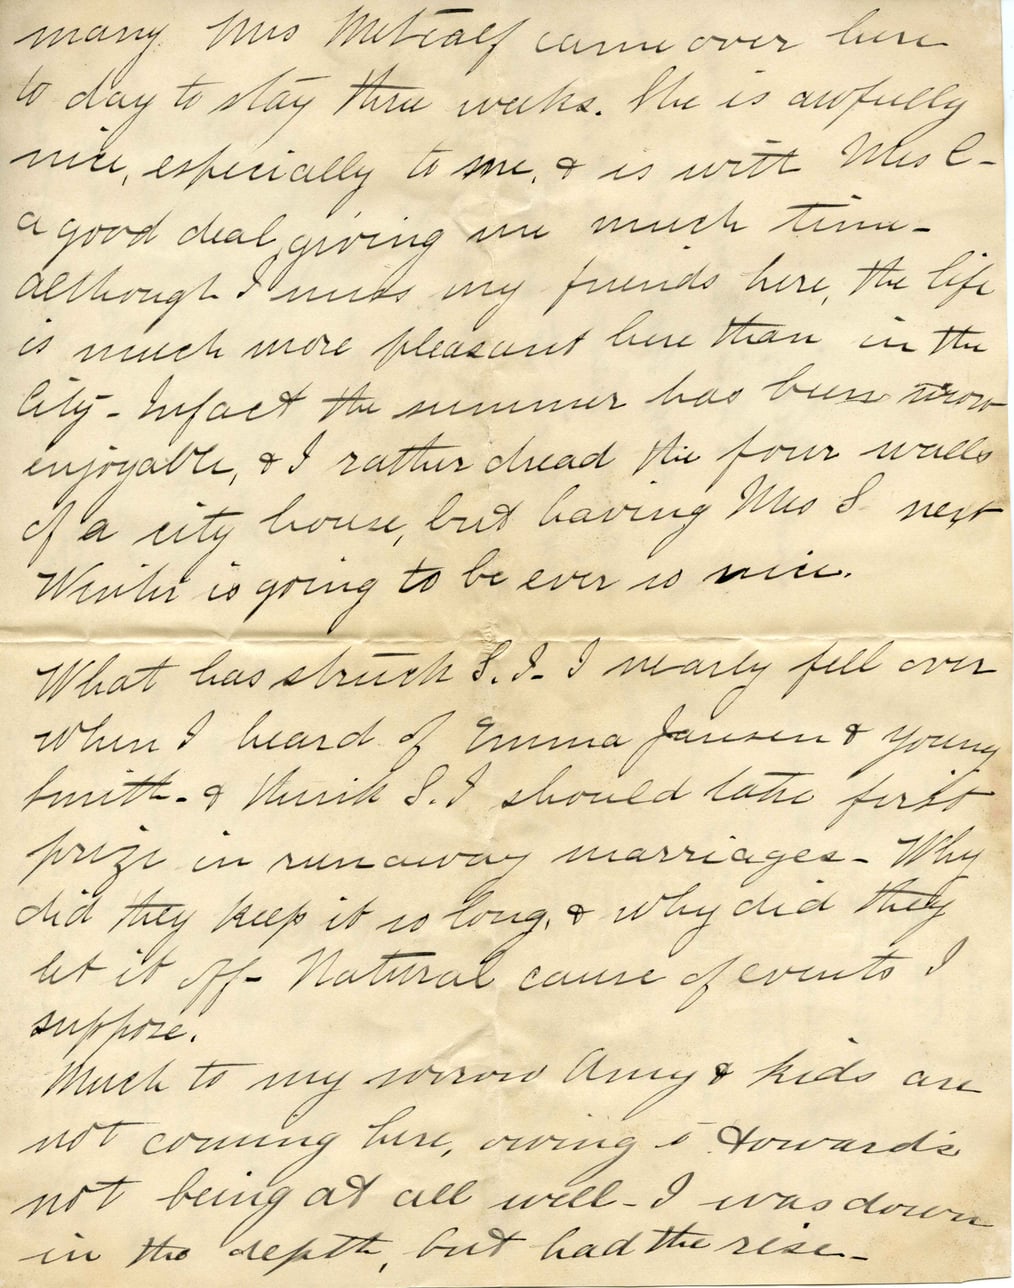 many Mrs Metcalf came over here
to day to stay three weeks. She is awfully
nice, especially to me, & is with Mrs C-
a good deal, giving me much time-
although I miss my friends here, the life
is much more pleasant here than in the
City- Infact the summer has been
enjoyable, & I rather dread the four walls
of a city house, but having Mrs S next
Winter is going to be ever so nice.
What has struck S.I- I nearly fell over
when I heard of Emma Jansen & young
Smith- & think S.I should take first
prize in runaway marriages- Why
did they keep it so long, & why did they
let it off- Natural cause of events I
suppose.
Much to my sorrow Amy & kids are
not coming here, owing to Howard's
not being at all well- I was down
in the depth, but had the rise-